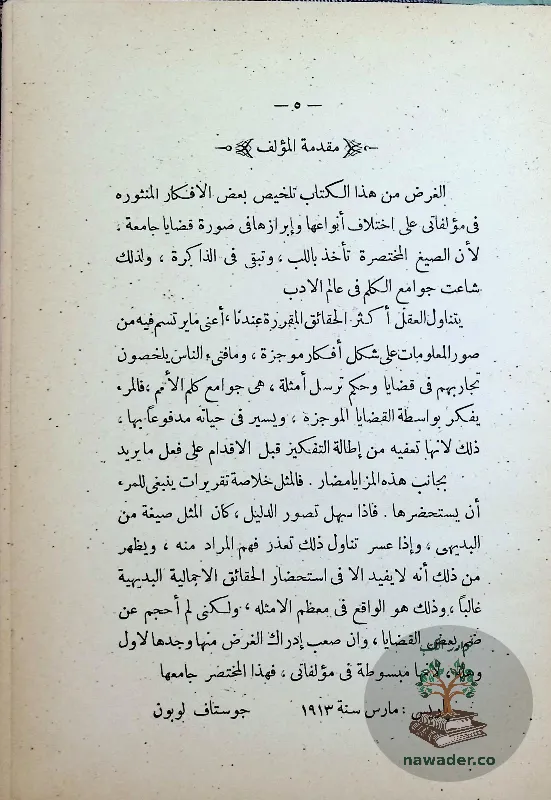 — ٥ —
مقدمة المؤلف
الغرض من هذا الكتاب تلخيص بعض الافكار المنثوره
فى مؤلفاتى على اختلاف أنواعها وإبرازها فى صورة قضايا جامعة ،
لأن الصيغ المختصرة تأخذ باللب ، وتبقى فى الذاكرة ، ولذلك
شاعت جوامع الكلم فى عالم الادب
يتناول العقل أكثر الحقائق المقررة عندنا ، أعنى ما يرتسم فيه من
صور المعلومات على شكل أفكار موجزة ، ومافتىء الناس يلخصون
تجاربهم فى قضايا وحكم ترسل أمثلة ، هى جوامع كلم الأمم ، فالمرء
يفكر بواسطة القضايا الموجزه ، ويسير فى حياته مدفوعاً بها ،
ذلك لانها تعفيه من إطالة التفكيز قبل الاقدام على فعل ما يريد
بجانب هذه المزايا مضار . فالمثل خلاصة تقريرات ينبغى للمرء
أن يستحضرها . فاذا سهل تصور الدليل ، كان المثل صيغة من
البديهى ، وإذا عسر تناول ذلك تعذر فهم المراد منه ، ويظهر
من ذلك أنه لا يفيد الا فى استحضار الحقائق الاجمالية البديهية
غالباً ، وذلك هو الواقع فى معظم الامثله ، ولكنى لم أحجم عن
ضم بعض القضايا ، وان صعب إدراك الغرض منها وحدها لاول
وهلة ، لانها مبسوطة فى مؤلفاتى ، فهذا المختصر جامعها
: مارس سنة ١٩١٣ جوستاف لوبون
nawader.co